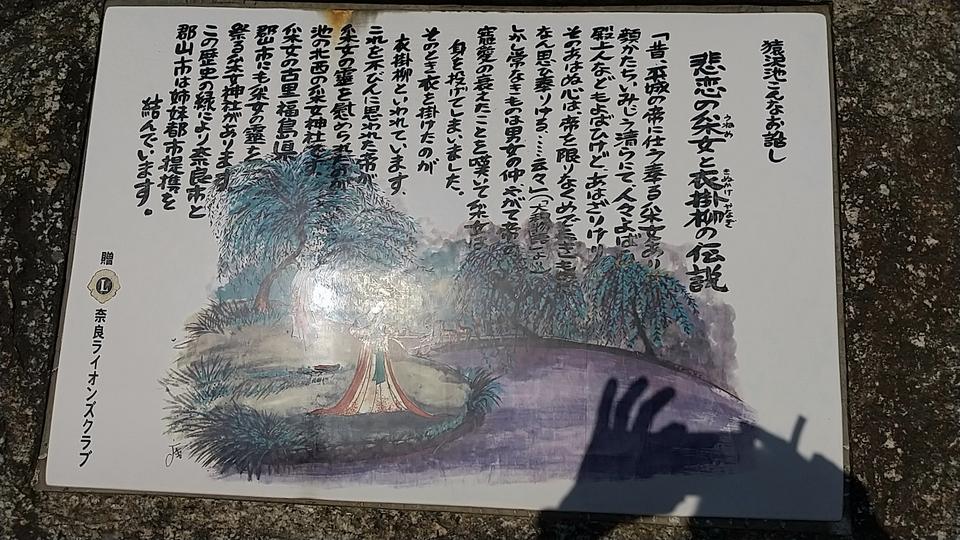 猿沢池こんなお話し
悲恋の采女と衣掛柳の伝説
うねめ
きぬかけ やなぎ
「昔、平城の帝に仕う奉る采女あり
顔かたちいみじう清らにて人々よばひ
殿上人などもよばひけど、あはざりけり
そのあはぬ心は、帝を限りなくめでたきもの
なん思ひ奉りける……云々」(大和物語より
しかし常なきものは男女の仲やがて帝の
寵愛の衰えたことを嘆いて采女は
身を投げてしまいました。
そのとき衣を掛けたのが
衣掛柳といわれています。
これを不びんに思われた帝が
采女の霊を慰められたのが
池の北西の采女神社です。
采女の古里福島県
郡山市にも采女の霊を
祭る采女神社があります
この歴史の縁により奈良市と
郡山市は姉妹都市提携を
結んでいます。
贈
L
奈良ライオンズクラブ